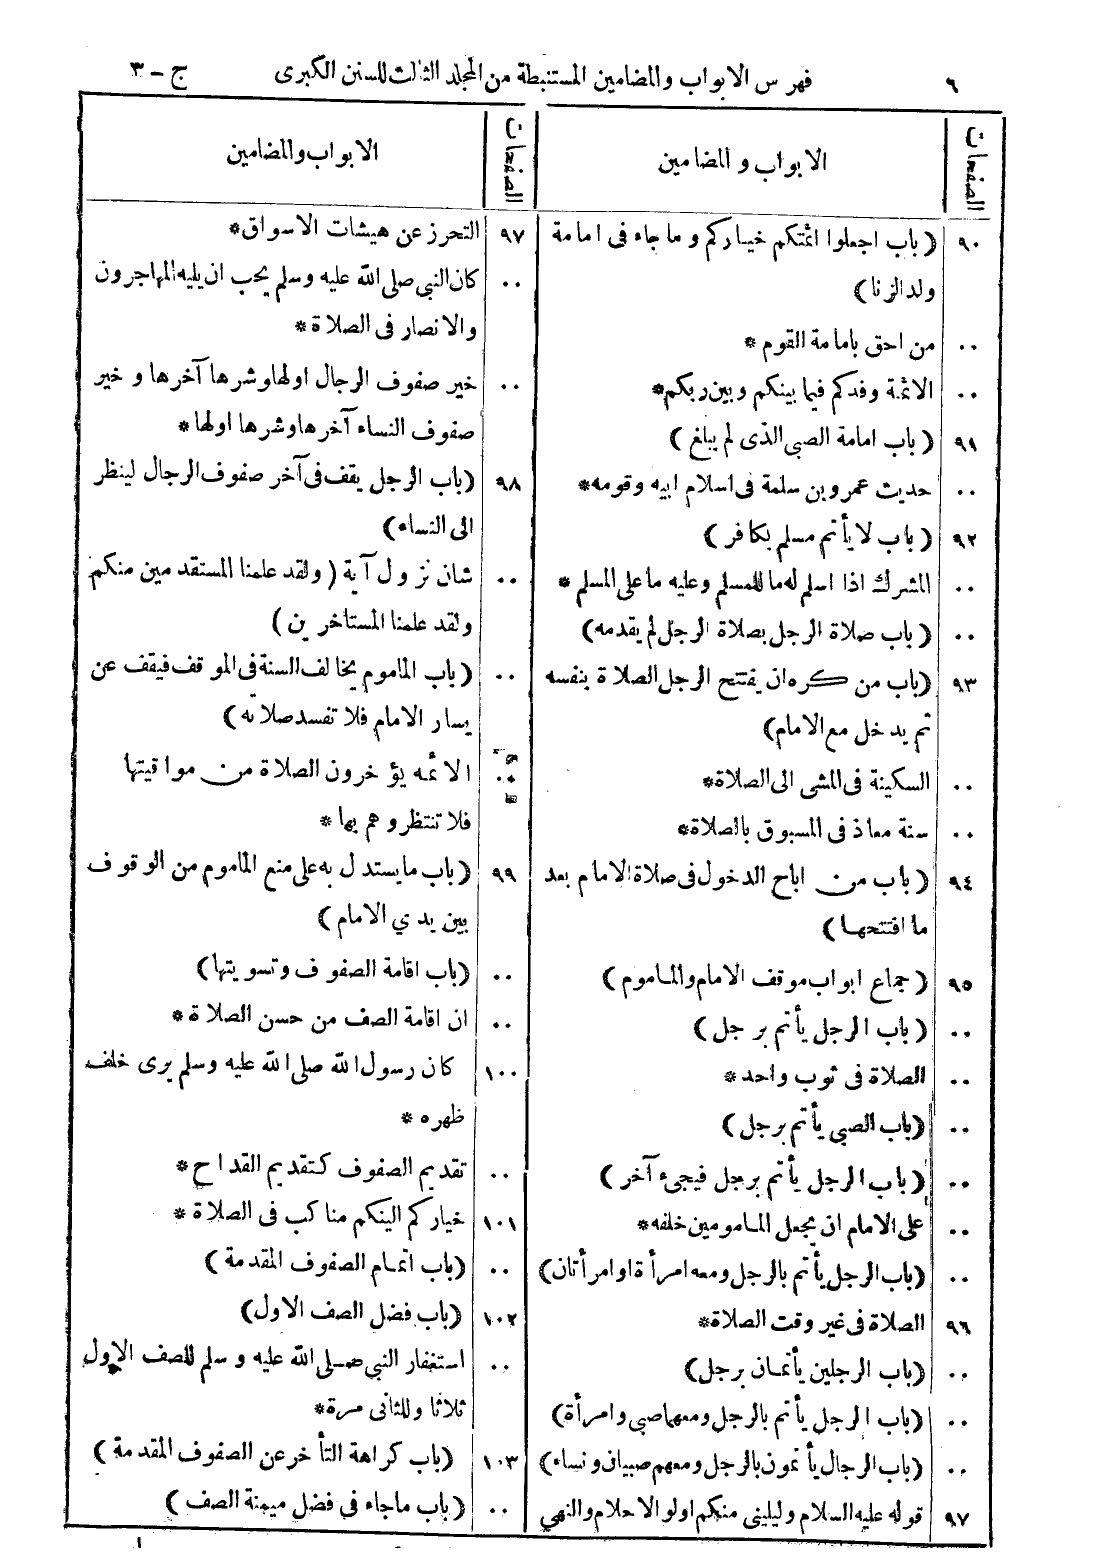 ٦ فهرس الابواب والمضامين المستنبطة من المجلد الثالث للسنن الكبرى ج-٣
الصفحات الابواب والمضامين
٩٠ (باب اجعلوا ائمتكم خياركم وما جاء فى امامة
ولد الزنا)
.. من احق بامامة القوم *
.. الائمة وفدكم فيما بينكم وبين ربكم*
٩١ (باب امامة الصبى الذى لم يبلغ)
.. حديث عمرو بن سلمة فى اسلام ابيه وقومه*
٩٢ (باب لا يأتم مسلم بكافر)
.. المشرك اذا اسلم له ما للمسلم وعليه ما على المسلم *
.. (باب صلاة الرجل بصلاة الرجل لم يقدمه)
٩٣ (باب من كره ان يفتتح الرجل الصلاة بنفسه
ثم يدخل مع الامام)
.. السكينة فى المشى الى الصلاة*
.. سنة معاذ فى المسبوق بالصلاة*
٩٤ (باب من اباح الدخول فى صلاة الامام بعد
ما افتتحها)
٩٥ (جماع ابواب موقف الامام والماموم)
.. (باب الرجل يأتم برجل)
.. الصلاة فى ثوب واحد*
.. (باب الصبى يأتم برجل)
.. (باب الرجل يأتم برجل فيجىء آخر)
.. على الامام ان يجعل المامومين خلفه*
.. (باب الرجل يأتم بالرجل ومعه امرأة او امرأتان)
٩٦ الصلاة فى غير وقت الصلاة*
.. (باب الرجلين يأتمان برجل)
.. (باب الرجل يأتم بالرجل ومعهما صبى وامرأة)
.. (باب الرجال يأتمون بالرجل ومعهم صبيان ونساء)
٩٧ قوله عليه السلام وليلينى منكم اولو الاحلام والنهى
الصفحات الابواب والمضامين
٩٧ التحرز عن هيشات الاسواق*
.. كان النبى صلى الله عليه وسلم يحب ان يليه المهاجرون
والانصار فى الصلاة*
.. خير صفوف الرجال اولها وشرها آخرها وخير
صفوف النساء آخرها وشرها اولها*
٩٨ (باب الرجل يقف فى آخر صفوف الرجال لينظر
الى النساء)
.. شان نزول آية (ولقد علمنا المستقدمين منكم
ولقد علمنا المستاخرين)
.. (باب الماموم يخالف السنة فى الموقف فيقف عن
يسار الامام فلا تفسد صلاته)
.. الائمه يؤخرون الصلاة من مواقيتها
فلا تنتظروهم بها*
٩٩ (باب ما يستدل به على منع الماموم من الوقوف
بين يدي الامام)
.. (باب اقامة الصفوف وتسويتها)
.. ان اقامة الصف من حسن الصلاة*
١٠٠ كان رسول الله صلى الله عليه وسلم يرى خلف
ظهره *
.. تقديم الصفوف كتقديم القداح*
١٠١ خياركم الينكم مناكب فى الصلاة *
.. (باب اتمام الصفوف المقدمة)
١٠٢ (باب فضل الصف الاول)
.. استغفار النبى صلى الله عليه وسلم للصف الاول
ثلاثا وللثانى مرة*
١٠٣ (باب كراهة التأخر عن الصفوف المقدمة)
.. (باب ما جاء في فضل ميمنة الصف)